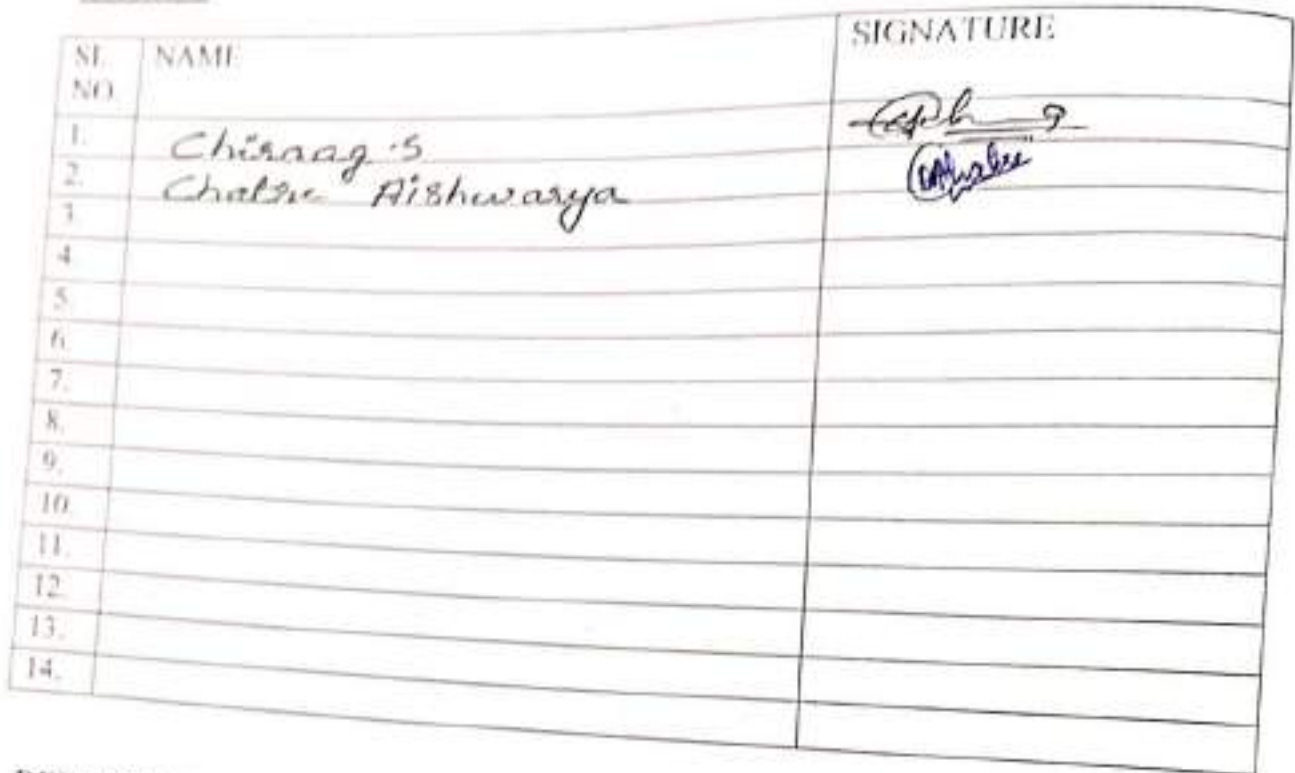 SL NAME SIGNATURE
NO.
1. Chiraag .S
2. Aishwarya
3.
4.
5.
6.
7.
8.
9.
10.
11.
12.
13.
14.